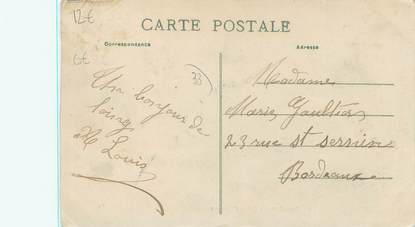 12€
6€
CARTE POSTALE
Correspondance
Adresse
33
Un bonjour de
loing
Louis
Madame
Marie Gaultier
23 rue st sernin
Bordeaux